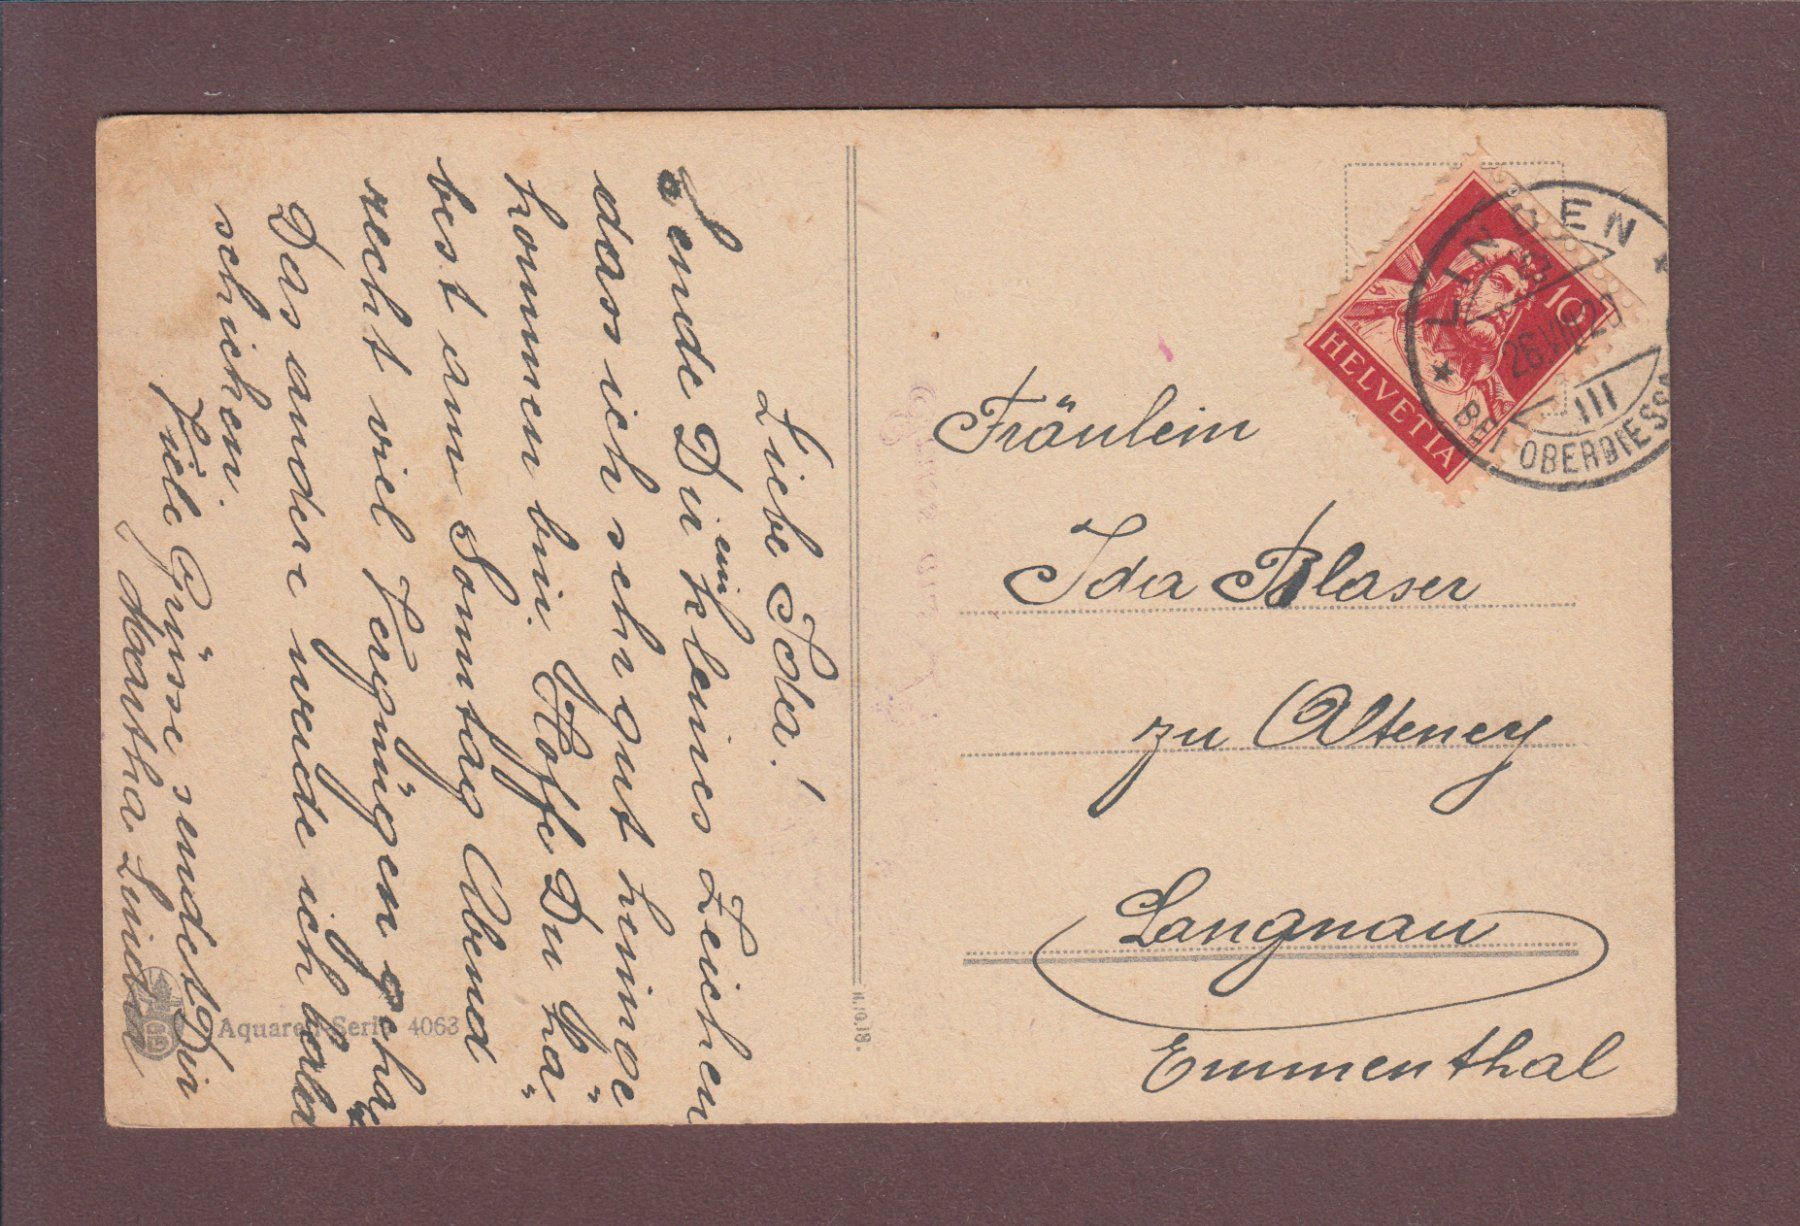 Liebe Ida!
Sende Dir ein kleines Zeichen
dass ich sehr gut heim ge¨
kommen bin. Hoffe Du ha¨
best am Sonntag Abend
recht viel Vergnügen geha¨
Das andere werde ich bald
schicken.
Viele Grüsse sendet Dir
Martha
Aquarell-Serie 4063
11.10.18.
Fräulein
Ida Blaser
zu Alteney
Langnau
Emmenthal
10
HELVETIA
* LINDEN *
III
BEI OBERDIESS